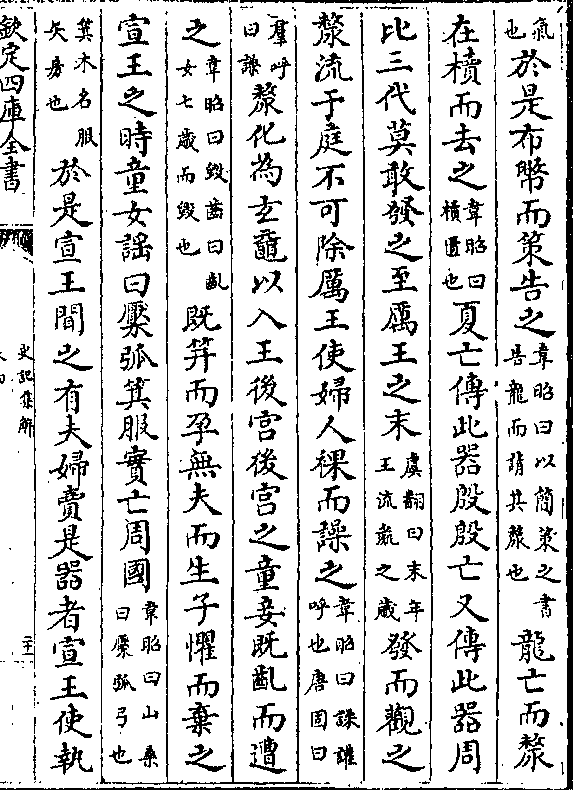 氣也於是布幣而策告之韋昭曰以簡策之書告龍而請其漦也龍亡而漦
在櫝而去之韋昭曰櫝匱也夏亡傳此器殷殷亡又傳此器周
比三代莫敢發之至厲王之末虞翻曰末年王流彘之歲發而觀之
漦流于庭不可除厲王使婦人裸而譟之韋昭曰譟讙呼也唐固曰
羣呼曰譟漦化為玄黿以入王後宮後宮之童妾既齓而遭
之韋昭曰毀齒曰齓女七歲而毀也既筓而孕無夫而生子懼而棄之
宣王之時童女謡曰檿弧箕服實亡周國韋昭曰山桑曰檿弧弓也
箕木名服矢房也於是宣王聞之有夫婦賣是器者宣王使執
欽定四庫全書
史記集解